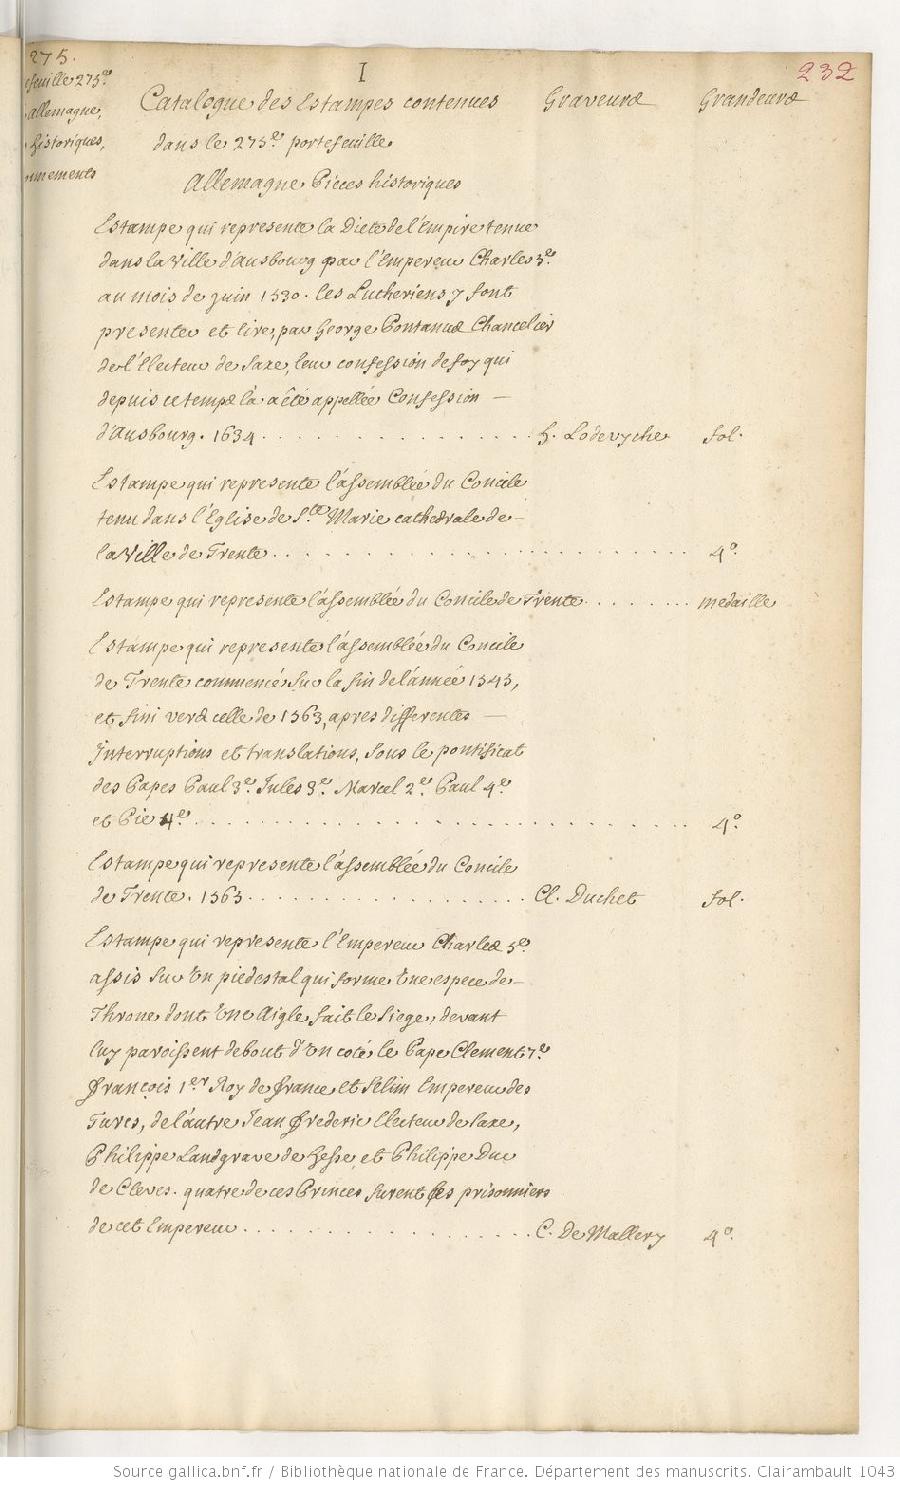 275.
I
232
efeuille 275e
allemagne,
historiques,
nnements
Catalogue des Estampes contenues Graveurs Grandeurs
dans le 275e portefeuille.
Allemagne Pieces historiques
Estampe qui represente la Diete de l'Empire tenue
dans la Ville d'Ausbourg par l'Empereur Charles 5e
au mois de juin 1530. les Lutheriens y font
presenter et lire, par George Pontanus Chancelier
de l'Electeur de Saxe, leur confession de foy qui
depuis ce temps là a été appellée Confession —
d'Ausbourg. 1634 . . . . . . . . . . . . . . . . H. Lodevyche fol.
Estampe qui represente l'assemblée du Concile
tenu dans l'Eglise de Ste Marie cathedrale de —
la Ville de Trente . . . . . . . . . . . . . . . . . . . . . . . . 4o.
Estampe qui represente l'assemblée du Concile de Trente . . . . . . . medaille
Estampe qui represente l'assemblée du Concile
de Trente commencé sur la fin de l'année 1545,
et fini vers celle de 1563, apres differentes —
Interruptions et translations, sous le pontificat
des Papes Paul 3e. Jules 3e. Marcel 2e. Paul 4e
et Pie 4e. . . . . . . . . . . . . . . . . . . . . . . . . . . . 4o.
Estampe qui represente l'assemblée du Concile
de Trente. 1563 . . . . . . . . . . . . . . . . . Cl. Duchet fol.
Estampe qui represente l'Empereur Charles 5e
assis sur Un piedestal qui forme Une espece de —
Throne dont Une Aigle fait le Siege, devant
luy paroissent debout d'Un coté le Pape Clement 7e
François 1er Roy de France et Selim Empereur des
Turcs, de l'autre Jean Frederic Electeur de Saxe,
Philippe Landgrave de Hesse, et Philippe Duc
de Cleves. quatre de ces Princes furent les prisonniers
de cet Empereur . . . . . . . . . . . . . . . . . . C. De Mallery 4o.
Source gallica.bnf.fr / Bibliothèque nationale de France. Département des manuscrits. Clairambault 1043